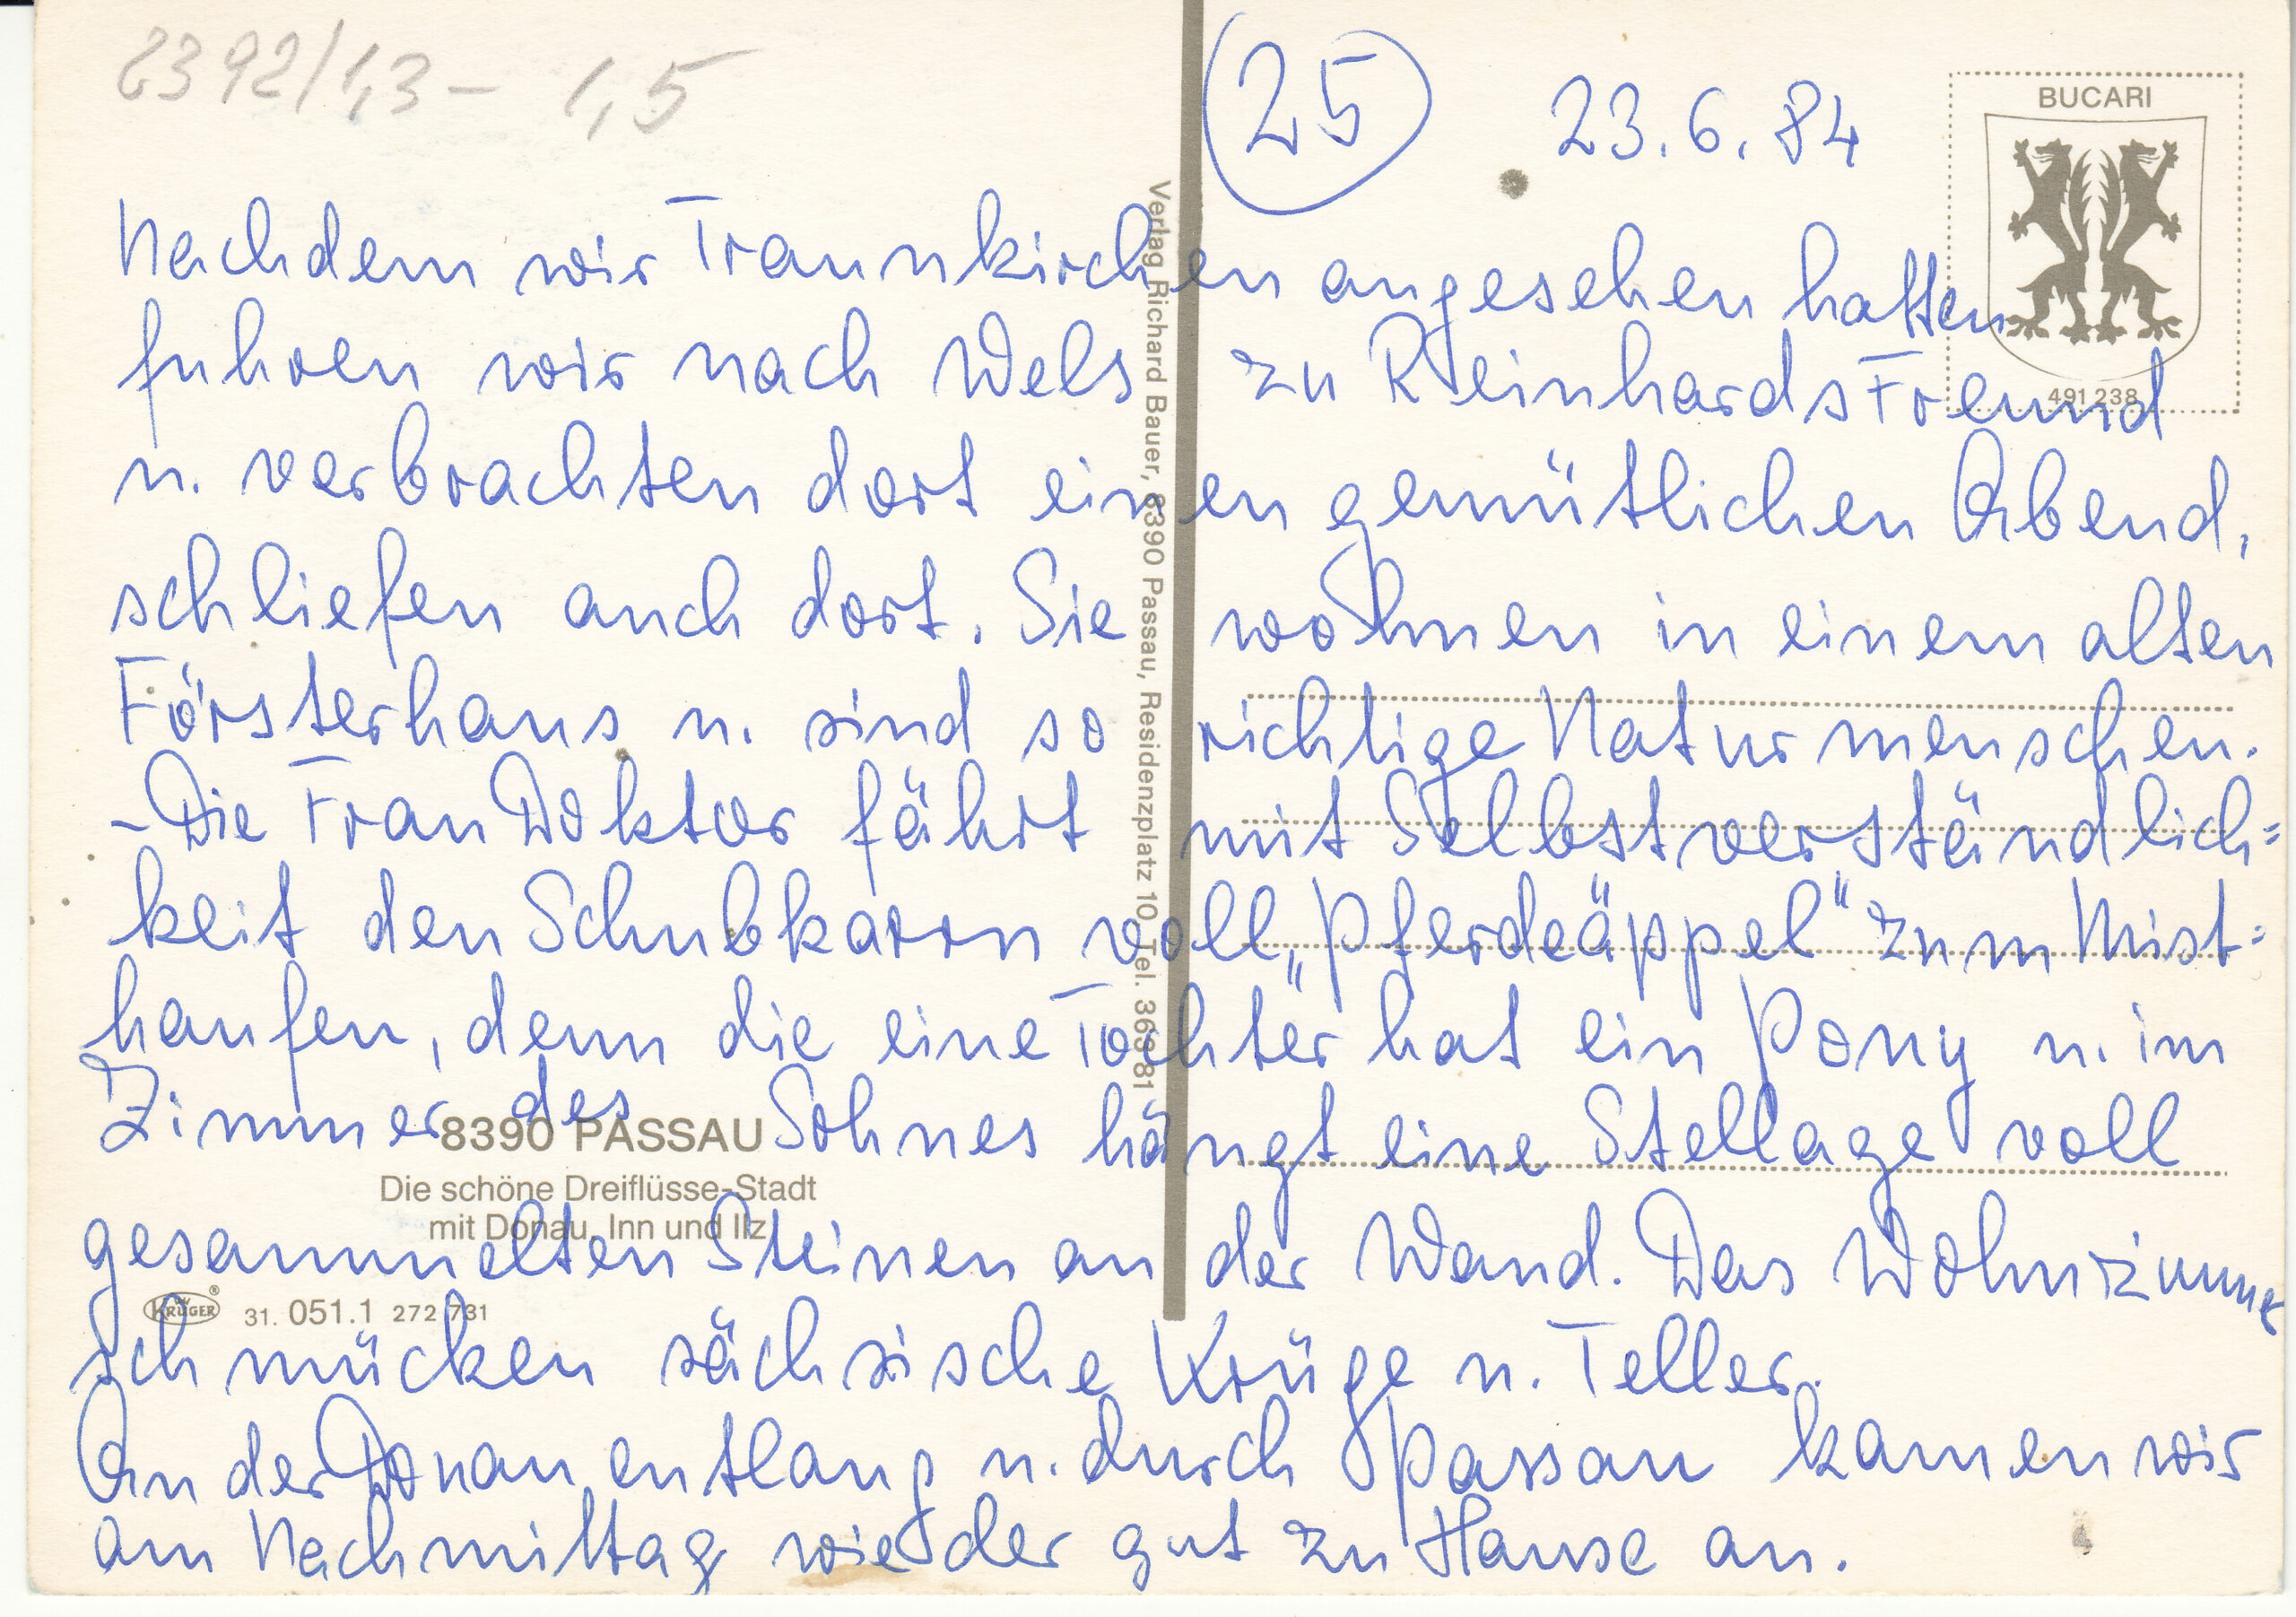 2392/1,3 – 1,5
25
23.6.84
BUCARI
491 238
Nachdem wir Traunkirchen angesehen hatten
fuhren wir nach Wels zu Reinhards Freund
u. verbrachten dort einen gemütlichen Abend,
schliefen auch dort. Sie wohnen in einem alten
Försterhaus u. sind so richtige Naturmenschen.
- Die Frau Doktor fährt mit Selbstverständlich=
keit den Schubkarrn voll „Pferdeäppel" zum Mist=
haufen, denn die eine Tochter hat ein Pony u. im
Zimmer des Sohnes hängt eine Stellage voll
gesammelten Steinen an der Wand. Das Wohnzimmer
schmücken sächsische Krüge u. Teller.
An der Donau entlang u. durch Passau kamen wir
am Nachmittag wieder gut zu Hause an.
Verlag Richard Bauer, 8390 Passau, Residenzplatz 10, Tel. 363 81
8390 PASSAU
Die schöne Dreiflüsse-Stadt
mit Donau, Inn und Ilz
KRÜGER® 31. 051.1 272 731